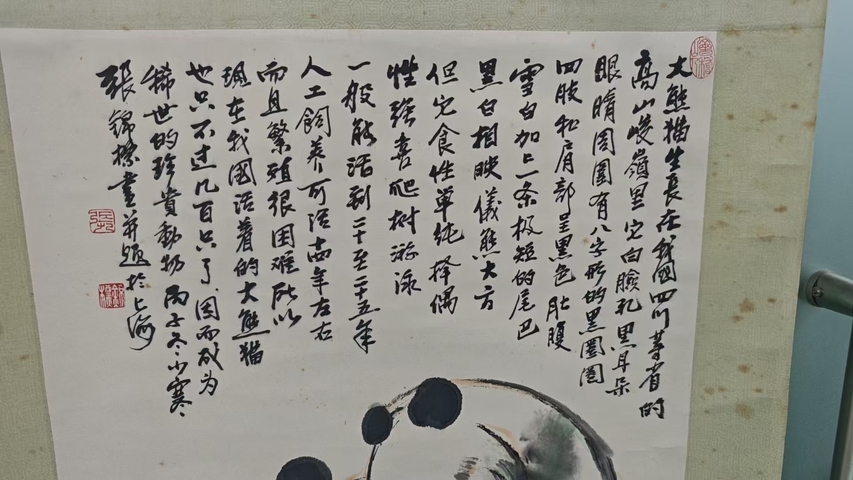 大熊猫生長在我國四川等省的
高山峻嶺里它白臉孔黑耳朵
眼睛周圍有八字形的黑圈圈
四肢和肩部呈黑色肚腹
雪白加上一条极短的尾巴
黑白相映儀態大方
但它食性單純择偶
性强喜爬树游泳
一般能活到二十至二十五年
人工飼养可活卅年左右
而且繁殖很困难所以
現在我國活着的大熊猫
也只不过几百只了因而成为
稀世的珍貴動物丙子冬小寒
張錦標畫并題於上海